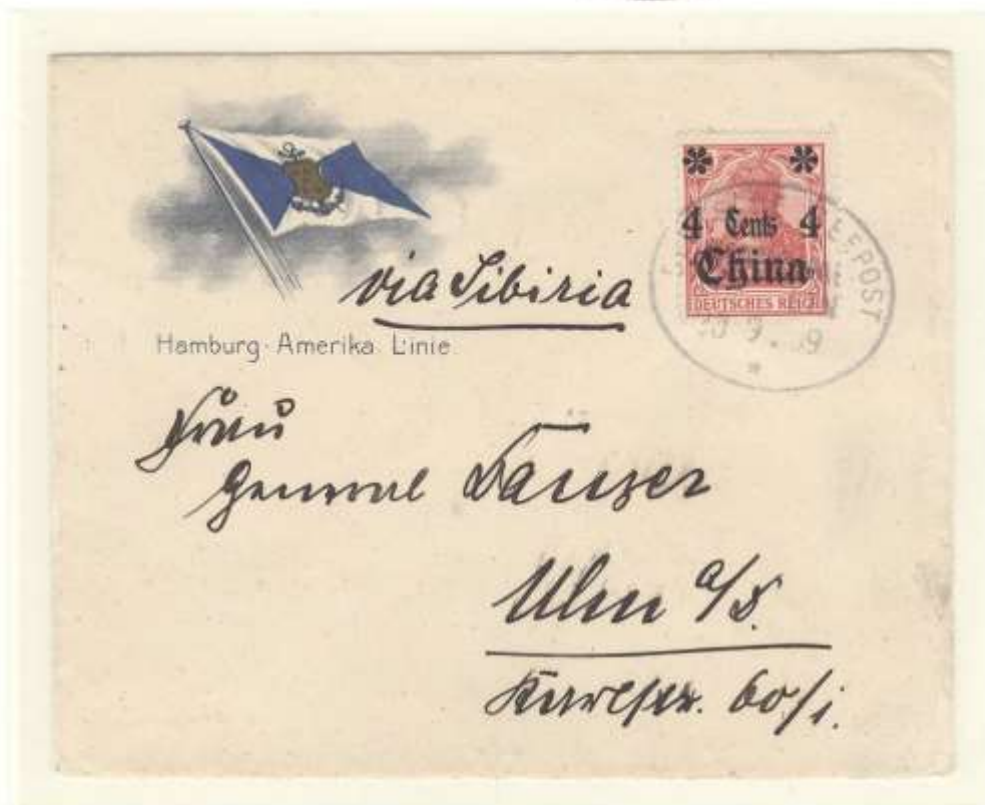 4 Cents 4
China
DEUTSCHES REICH
via Sibiria
Hamburg-Amerika Linie
Frau
General
Ulm a/D.
Karlstr. 60/I.